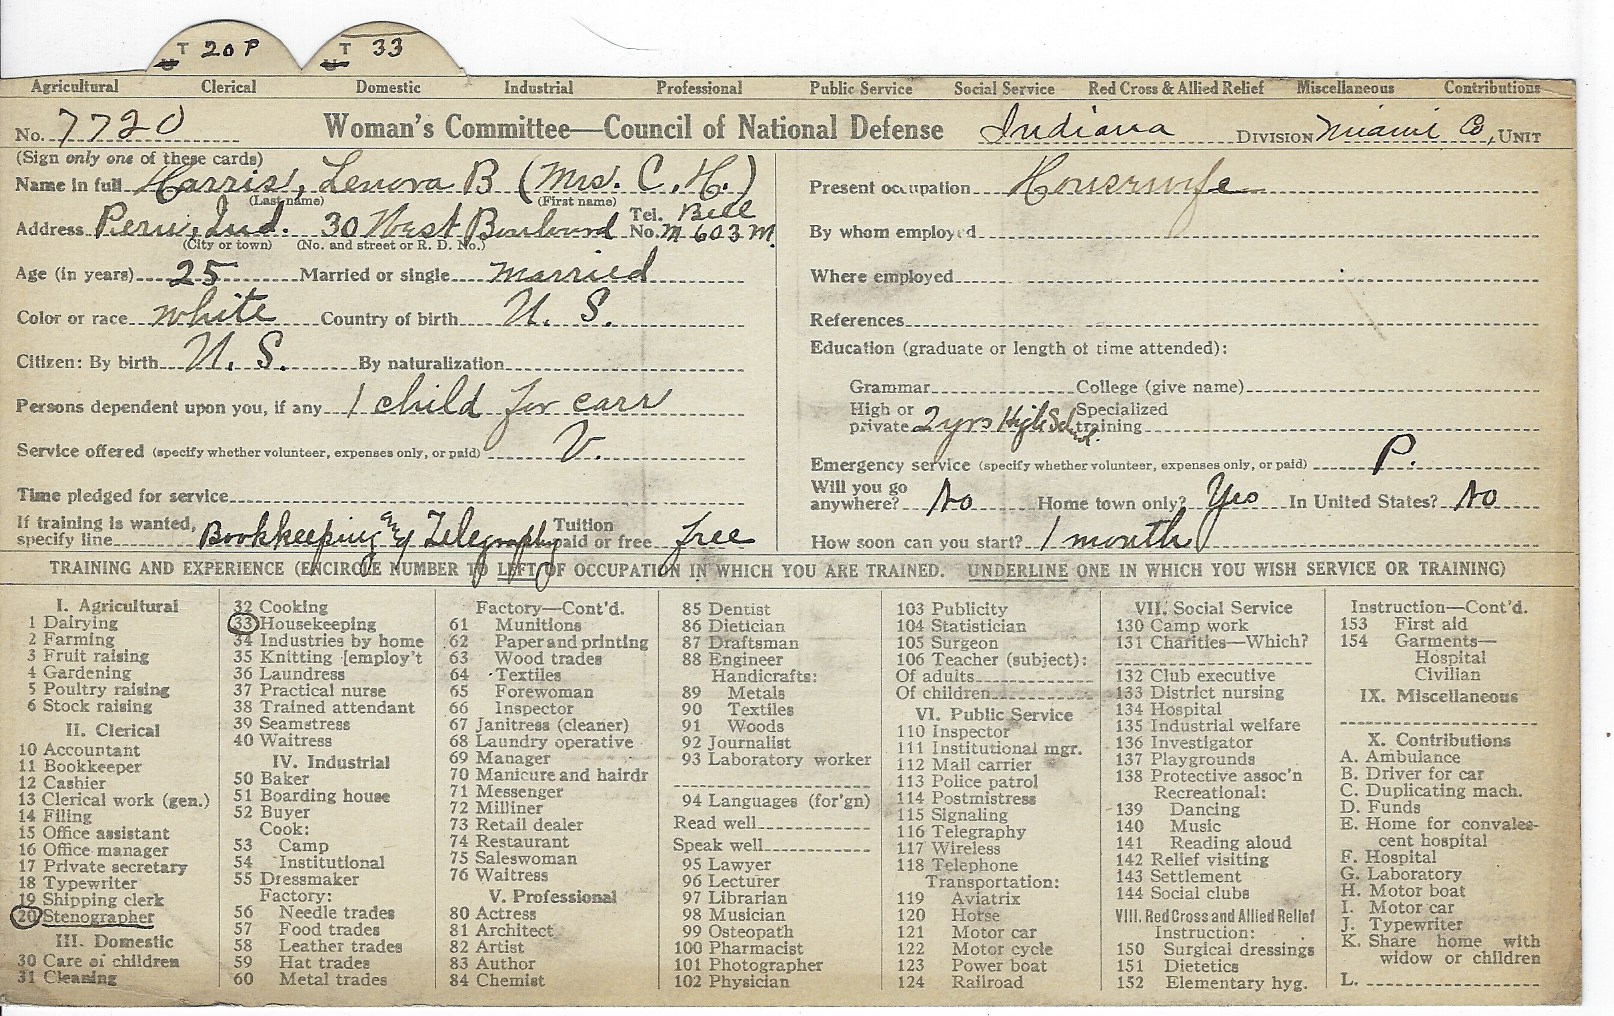 T 20 P T 33
Agricultural Clerical Domestic Industrial Professional Public Service Social Service Red Cross & Allied Relief Miscellaneous Contributions
No. 7720 Woman's Committee—Council of National Defense Indiana DIVISION Miami Co, UNIT
(Sign only one of these cards)
Name in full Harris, Lenora B (Mrs. C. H.)
(Last name) (First name)
Address Peru, Ind. 30 West Boulevard Tel. No. Bell M 603 M.
(City or town) (No. and street or R. D. No.)
Age (in years) 25 Married or single married
Color or race white Country of birth U. S.
Citizen: By birth U. S. By naturalization
Persons dependent upon you, if any 1 child for care
Service offered (specify whether volunteer, expenses only, or paid) V.
Time pledged for service
If training is wanted, specify line Bookkeeping Telegraphy Tuition paid or free free
Present occupation Housewife
By whom employed
Where employed
References
Education (graduate or length of time attended):
Grammar College (give name)
High or private 2 yrs High School. Specialized training
Emergency service (specify whether volunteer, expenses only, or paid) P.
Will you go anywhere? No Home town only? Yes In United States? No
How soon can you start? 1 month
TRAINING AND EXPERIENCE (ENCIRCLE NUMBER TO LEFT OF OCCUPATION IN WHICH YOU ARE TRAINED. UNDERLINE ONE IN WHICH YOU WISH SERVICE OR TRAINING)
I. Agricultural
1 Dairying
2 Farming
3 Fruit raising
4 Gardening
5 Poultry raising
6 Stock raising
II. Clerical
10 Accountant
11 Bookkeeper
12 Cashier
13 Clerical work (gen.)
14 Filing
15 Office assistant
16 Office manager
17 Private secretary
18 Typewriter
19 Shipping clerk
20 Stenographer
III. Domestic
30 Care of children
31 Cleaning
32 Cooking
33 Housekeeping
34 Industries by home
35 Knitting [employ't
36 Laundress
37 Practical nurse
38 Trained attendant
39 Seamstress
40 Waitress
IV. Industrial
50 Baker
51 Boarding house
52 Buyer
Cook:
53 Camp
54 Institutional
55 Dressmaker
Factory:
56 Needle trades
57 Food trades
58 Leather trades
59 Hat trades
60 Metal trades
Factory—Cont'd.
61 Munitions
62 Paper and printing
63 Wood trades
64 Textiles
65 Forewoman
66 Inspector
67 Janitress (cleaner)
68 Laundry operative
69 Manager
70 Manicure and hairdr
71 Messenger
72 Milliner
73 Retail dealer
74 Restaurant
75 Saleswoman
76 Waitress
V. Professional
80 Actress
81 Architect
82 Artist
83 Author
84 Chemist
85 Dentist
86 Dietician
87 Draftsman
88 Engineer
Handicrafts:
89 Metals
90 Textiles
91 Woods
92 Journalist
93 Laboratory worker
94 Languages (for'gn)
Read well
Speak well
95 Lawyer
96 Lecturer
97 Librarian
98 Musician
99 Osteopath
100 Pharmacist
101 Photographer
102 Physician
103 Publicity
104 Statistician
105 Surgeon
106 Teacher (subject):
Of adults
Of children
VI. Public Service
110 Inspector
111 Institutional mgr.
112 Mail carrier
113 Police patrol
114 Postmistress
115 Signaling
116 Telegraphy
117 Wireless
118 Telephone
Transportation:
119 Aviatrix
120 Horse
121 Motor car
122 Motor cycle
123 Power boat
124 Railroad
VII. Social Service
130 Camp work
131 Charities—Which?
132 Club executive
133 District nursing
134 Hospital
135 Industrial welfare
136 Investigator
137 Playgrounds
138 Protective assoc'n
Recreational:
139 Dancing
140 Music
141 Reading aloud
142 Relief visiting
143 Settlement
144 Social clubs
VIII. Red Cross and Allied Relief
Instruction:
150 Surgical dressings
151 Dietetics
152 Elementary hyg.
Instruction—Cont'd.
153 First aid
154 Garments—
Hospital
Civilian
IX. Miscellaneous
X. Contributions
A. Ambulance
B. Driver for car
C. Duplicating mach.
D. Funds
E. Home for convales-
cent hospital
F. Hospital
G. Laboratory
H. Motor boat
I. Motor car
J. Typewriter
K. Share home with
widow or children
L.